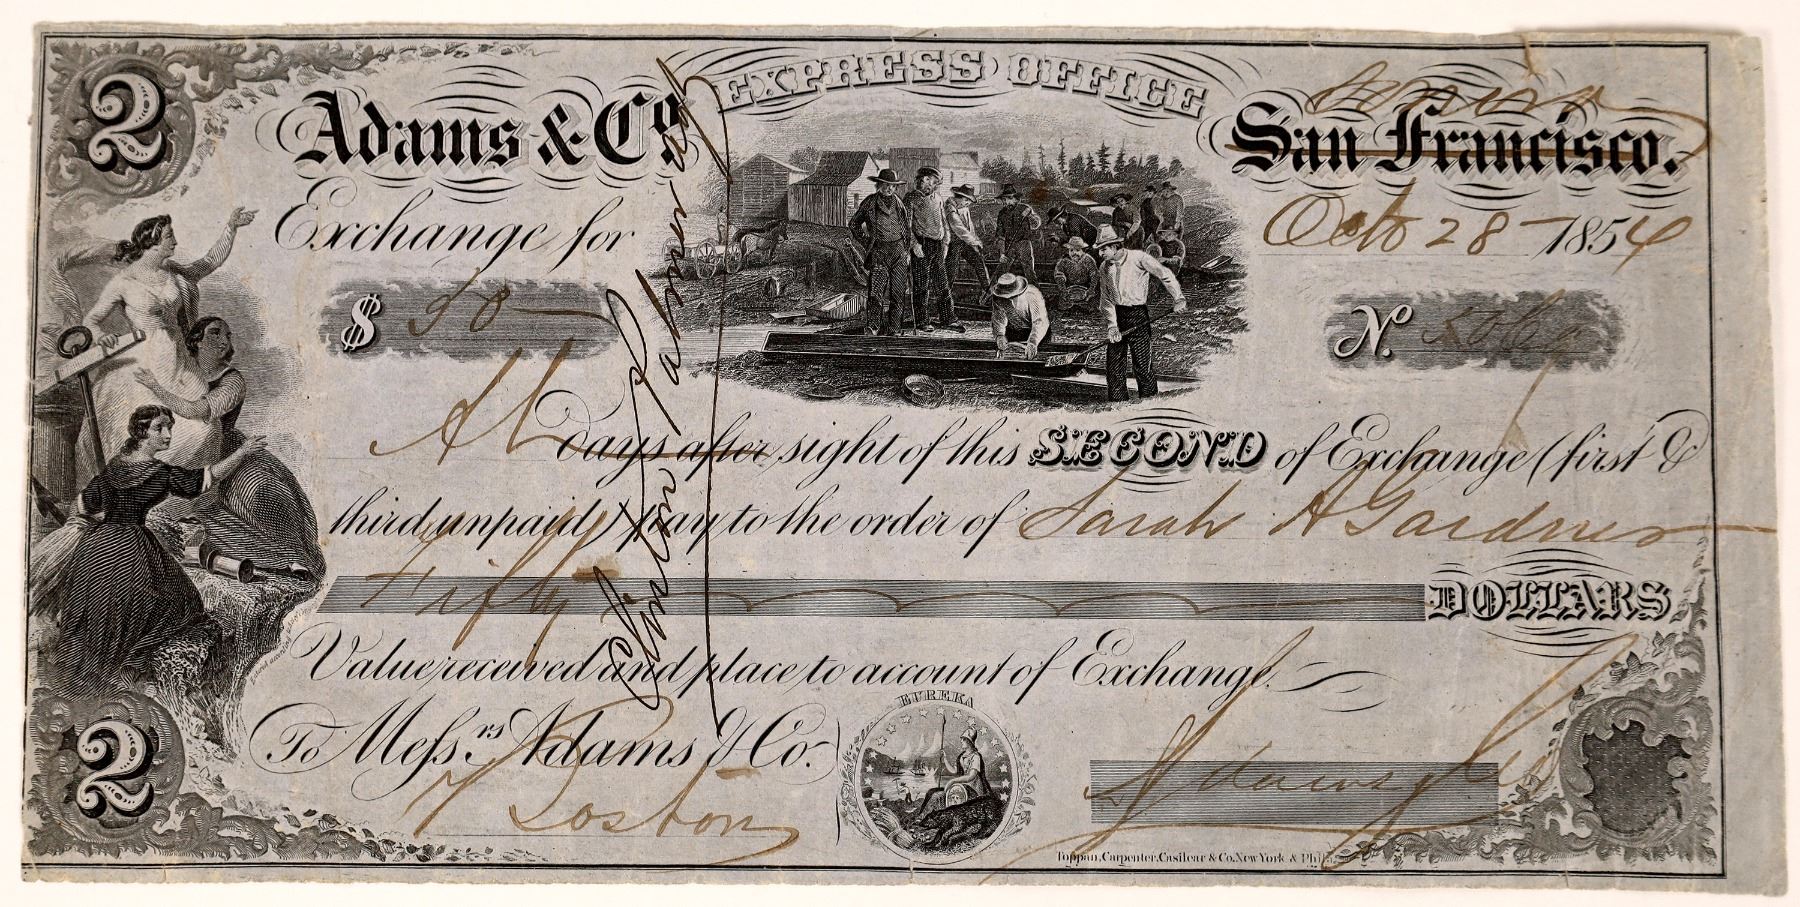 2
Adams & Co.
EXPRESS OFFICE
Sonora
San Francisco.
Exchange for
Oct 28 1854
$ 50
No.
At days after sight of this SECOND of Exchange (first &
third unpaid) pay to the order of Sarah A Gardner
Fifty DOLLARS
Value received and place to account of Exchange.
To Messrs Adams & Co.
Boston
EUREKA
Adams & Co
2
Toppan, Carpenter, Casilear & Co. New York & Phila.